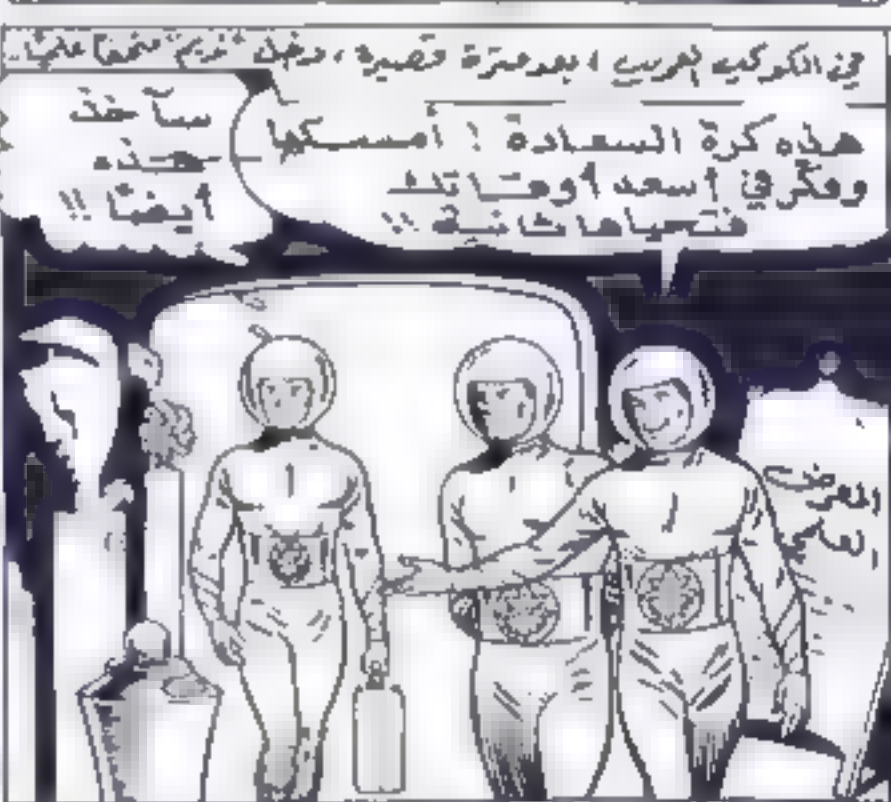 في الكوكب الغريب ، بعد فترة قصيرة ، دخل "نديم" متحفا علميا..
هذه كرة السعادة ! أمسكها
وفكر في أسعد أوقاتك
فتحياها ثانية !!
سآخذ
هذه
أيضًا !!
المعرض
العلمي